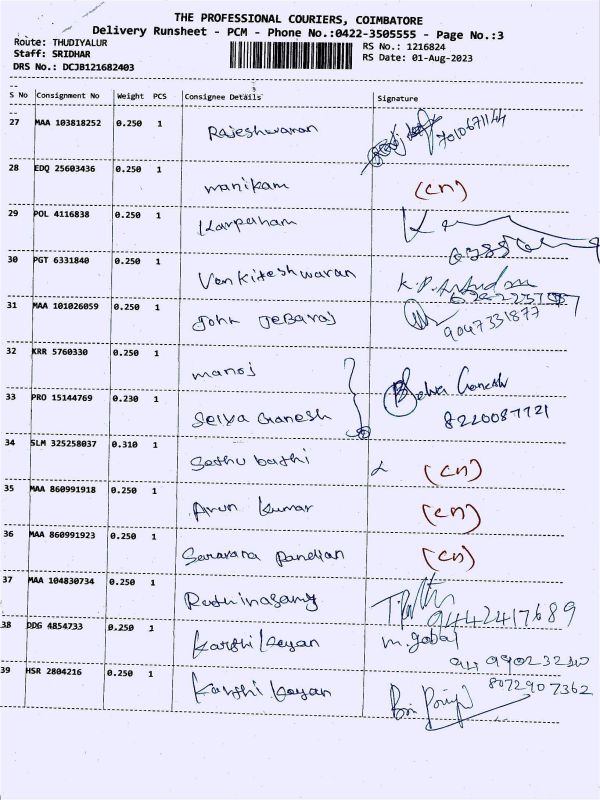 THE PROFESSIONAL COURIERS, COIMBATORE
Delivery Runsheet - PCM - Phone No.:0422-3505555 - Page No.:3
Route: THUDIYALUR
RS No.: 1216824
Staff: SRIDHAR
RS Date: 01-Aug-2023
DRS No.: DCJB121682403
S No Consignment No Weight PCS Consignee Details Signature
27 MAA 103818252 0.250 1 Rajeshwaran 7010671144
28 EDQ 25603436 0.250 1 manikam (cn)
29 POL 4116838 0.250 1 Karpatham
30 PGT 6331840 0.250 1 Venkiteshwaran
31 MAA 101026059 0.250 1 John Jebaraj 9047331877
32 KRR 5760330 0.250 1 manoj
33 PRO 15144769 0.230 1 Selva Ganesh Selva Ganesh 8220087721
34 SLM 325258037 0.310 1 Sethu bathi (cn)
35 MAA 860991918 0.250 1 Arun kumar (cn)
36 MAA 860991923 0.250 1 Saravana Pandian (cn)
37 MAA 104830734 0.250 1 Rathinasamy 9442417689
38 DDG 4854733 0.250 1 Karthi Keyan m.gobal
39 HSR 2804216 0.250 1 Karthi Keyan 8072907362